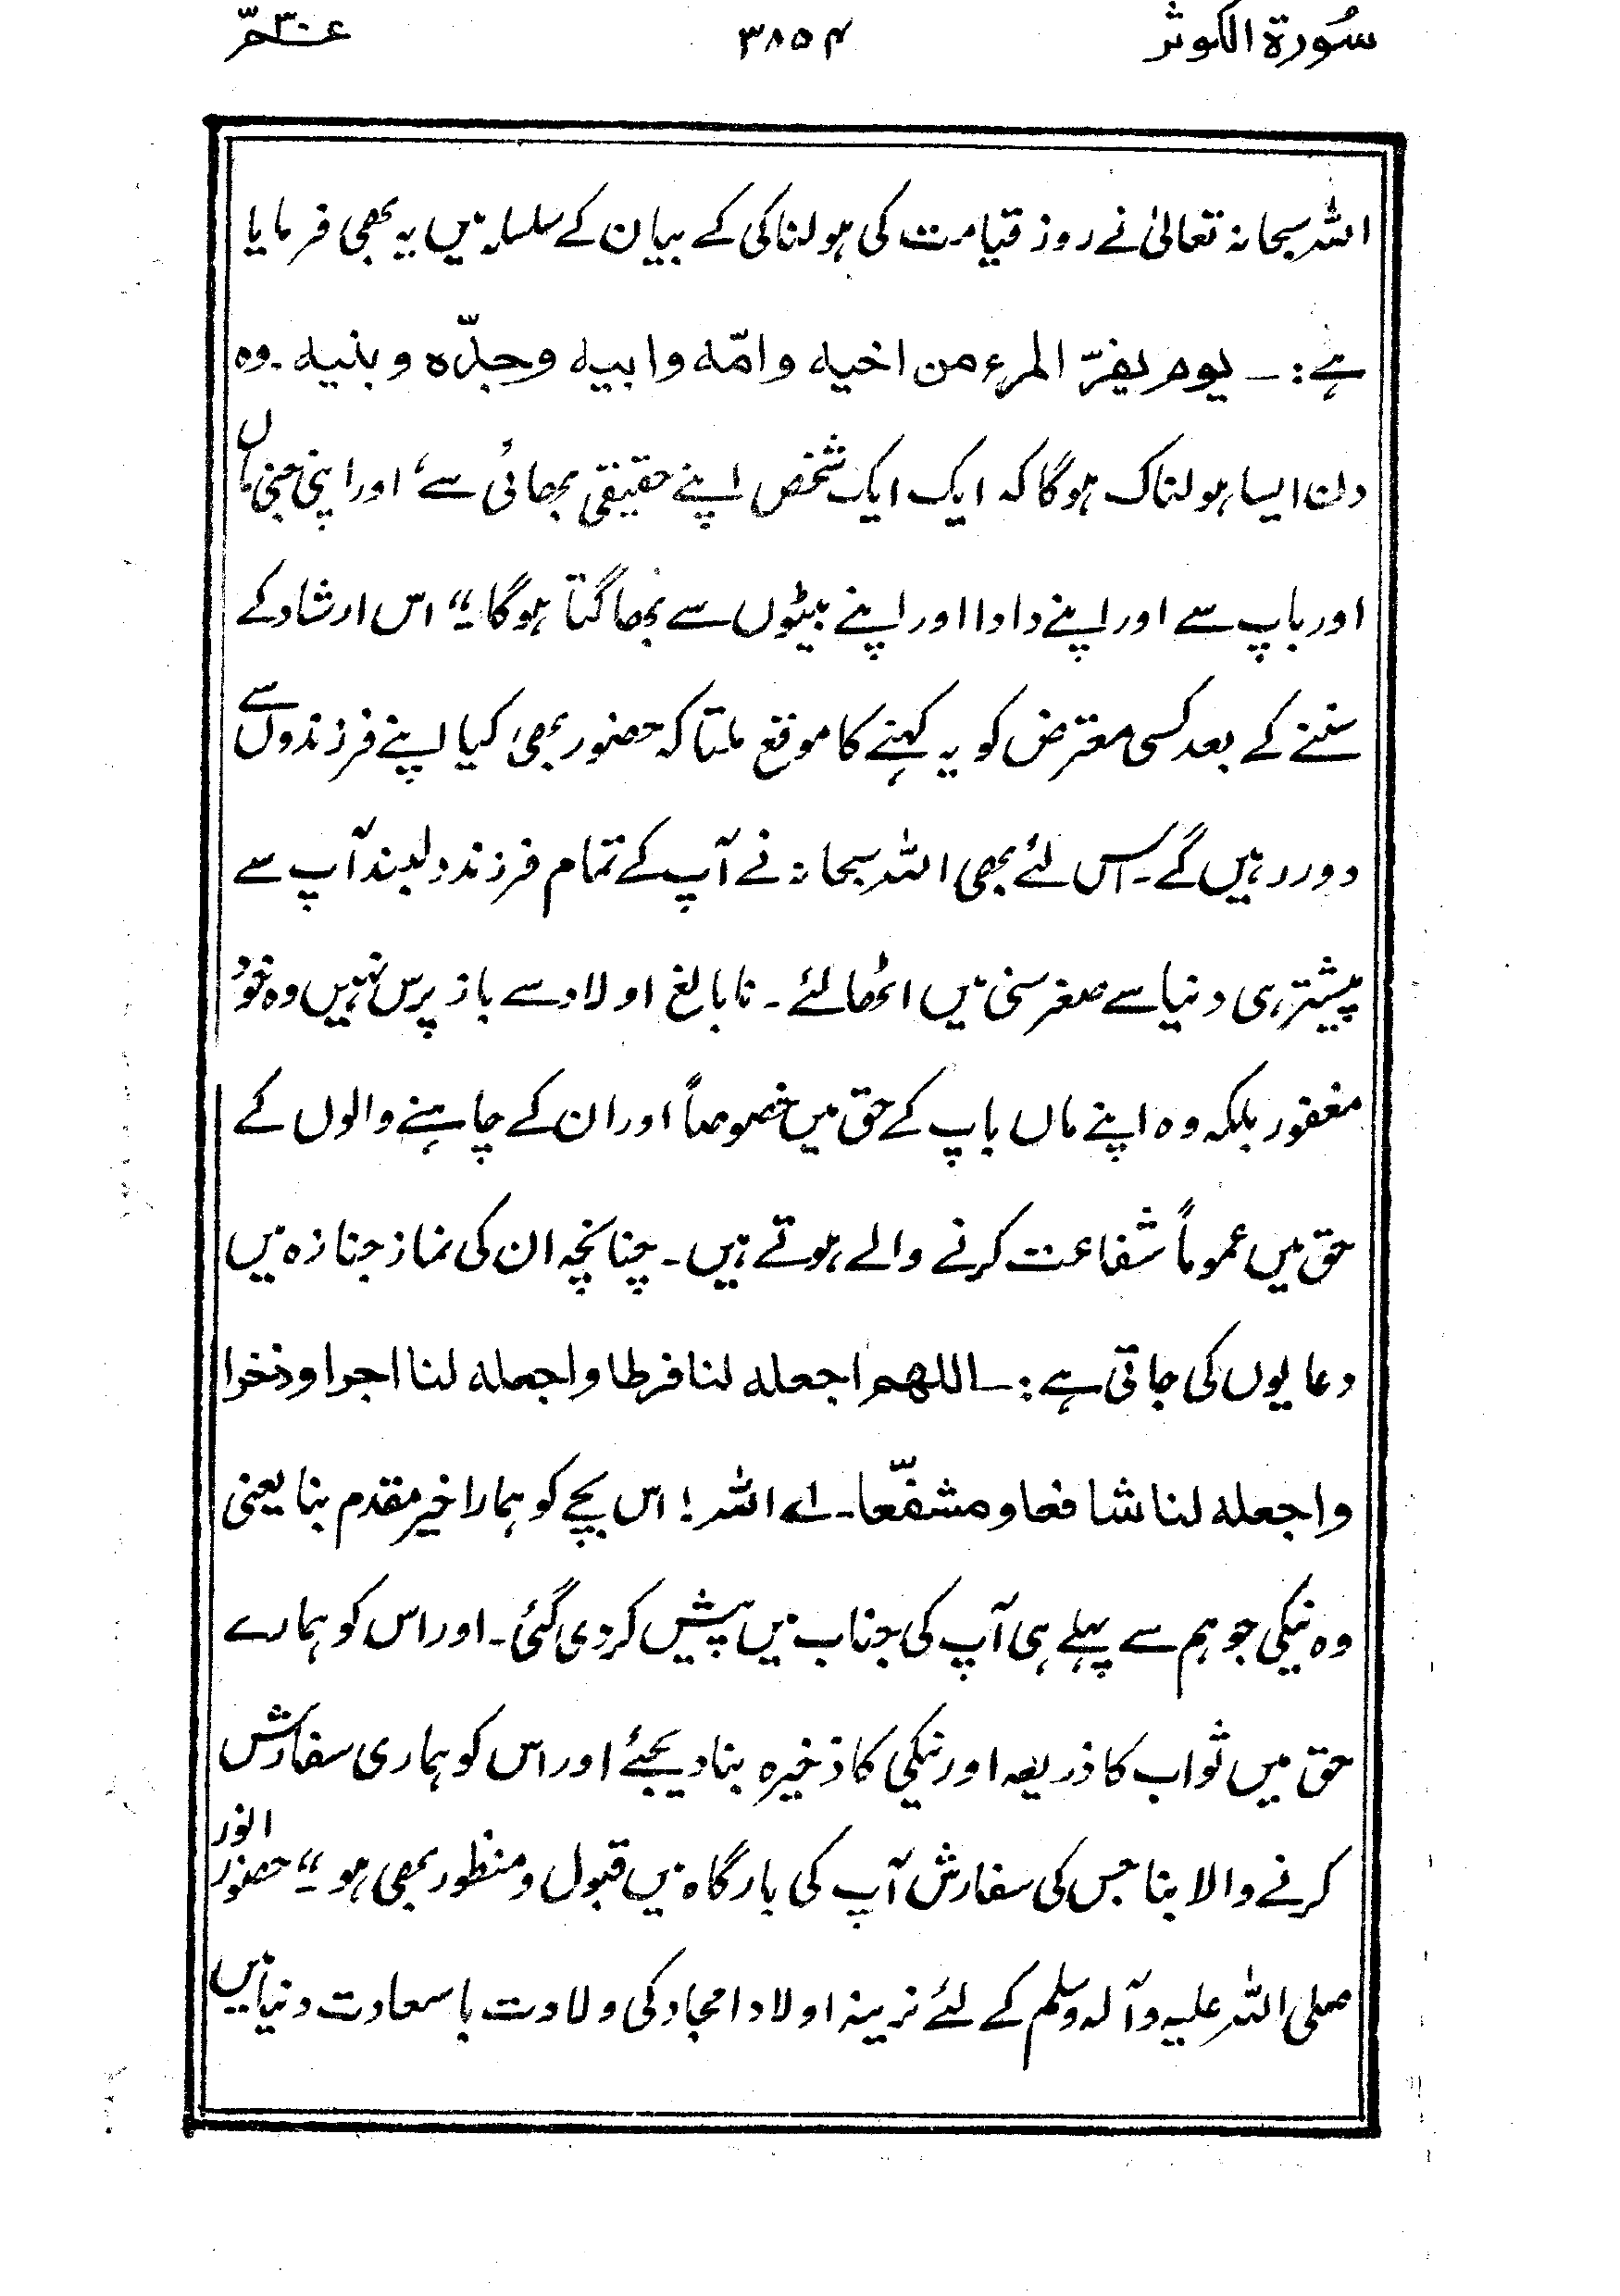 سُورة الکوثر ۳۸۵۴ عـمّ ۳۰
اللہ سبحانہ تعالیٰ نے روز قیامت کی ہولناکی کے بیان کے سلسلہ میں یہ بھی فرمایا
ہے :۔ یوم یفرّ المرء من اخیہ وامّہ وابیہ وجدّہ وبنیہ ۔ وہ
دن ایسا ہولناک ہوگا کہ ایک ایک شخص اپنے حقیقی بھائی سے، اور اپنی جنی ماں
اور باپ سے اور اپنے دادا اور اپنے بیٹوں سے بھاگتا ہوگا ۔“ اس ارشاد کے
سننے کے بعد کسی معترض کو یہ کہنے کا موقع ملتا کہ حضور بھی کیا اپنے فرزندوں سے
دور رہیں گے ۔ اس لئے بھی اللہ سبحانہ نے آپ کے تمام فرزند دلبند آپ سے
پیشتر ہی دنیا سے صغر سنی میں اٹھا لئے ۔ نابالغ اولاد سے باز پرس نہیں وہ خود
مغفور بلکہ وہ اپنے ماں باپ کے حق میں خصوصاً اور ان کے چاہنے والوں کے
حق میں عموماً شفاعت کرنے والے ہوتے ہیں ۔ چنانچہ ان کی نماز جنازہ میں
دعا یوں کی جاتی ہے :۔ اللھم اجعلہ لنا فرطا واجعلہ لنا اجرا وذخرا
واجعلہ لنا شافعا ومشفّعا ۔ اے اللہ ! اس بچے کو ہمارا خیر مقدم بنا یعنی
وہ نیکی جو ہم سے پہلے ہی آپ کی جناب میں پیش کر دی گئی ۔ اور اس کو ہمارے
حق میں ثواب کا ذریعہ اور نیکی کا ذخیرہ بنا دیجئے اور اس کو ہماری سفارش
کرنے والا بنا جس کی سفارش آپ کی بارگاہ میں قبول ومنظور بھی ہو ۔“ حضور انور
صلی اللہ علیہ وآلہ وسلم کے لئے نرینہ اولاد امجاد کی ولادت باسعادت دنیا میں